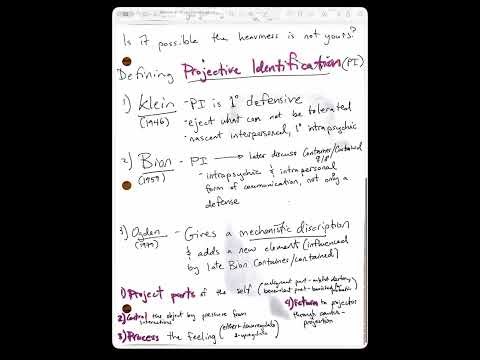 Is it possible the heaviness is not yours?
Defining Projective Identification (PI)
1) Klein - PI is 1° defensive
(1946) - eject what can not be tolerated
- nascent interpersonal, 1° intrapsychic
2) Bion - PI → later discuss Container/Contained
(1959) ♀/♂
- intrapsychic & intrapersonal
form of communication, not only a
defense
3) Ogden - Gives a mechanistic discription
(1979) & adds a new element (influenced
by late Bion Container/contained)
1) Project parts of the self (malignant part -
benevolent part -
2) Control the object by pressure from
interactions
3) Process the feeling (either downregulate
or upregulate)
4) Return to projector
through
projection